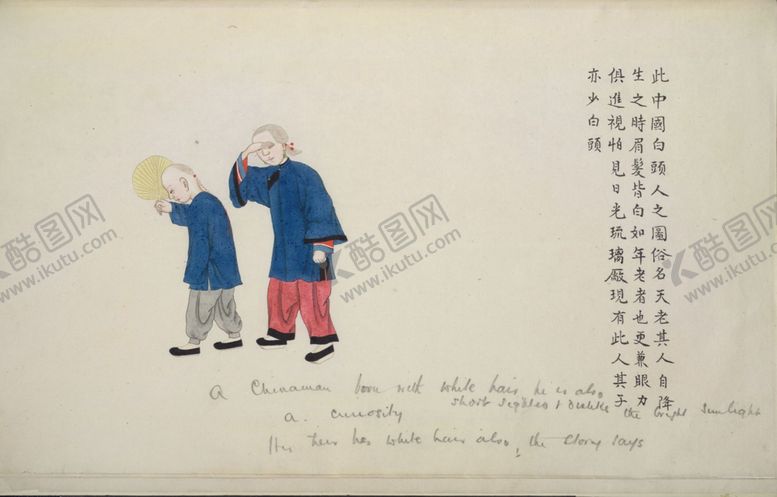 此中國白頭人之圖俗名天老其人自降
生之時眉髮皆白如年老者也更兼眼力
俱進視怕見日光琉璃廠現有此人其子
亦少白頭
A Chinaman born with white hair, he is also
short sighted & dislike the bright sunlight
a curiosity
His heir has white hair also, the story says
酷图网
www.ikutu.com
酷图网
www.ikutu.com
酷图网
www.ikutu.com